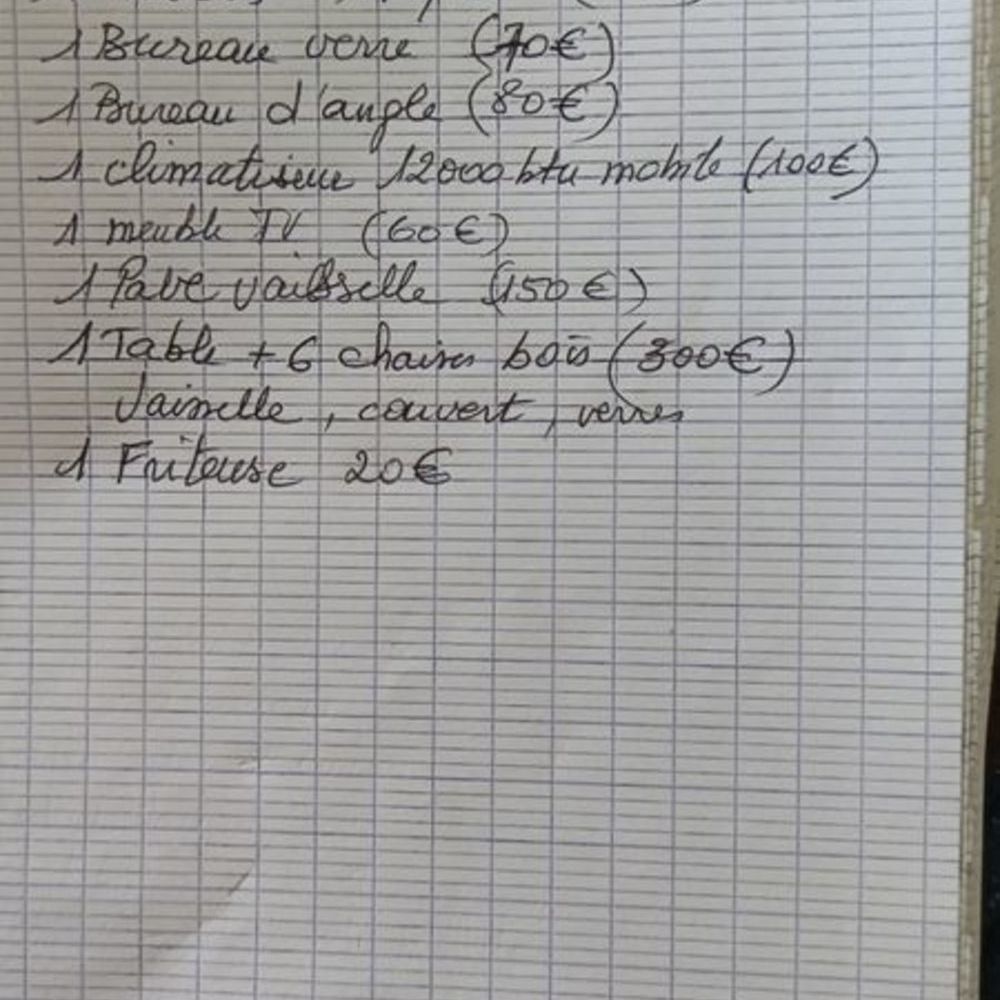 1 Bureau verre (70€)
1 Bureau d'angle (80€)
1 climatiseur 12000 btu mobile (100€)
1 meuble TV (60€)
1 Lave vaisselle (150€)
1 Table + 6 chaises bois (300€)
Vaisselle, couvert, verres
1 Friteuse 20€